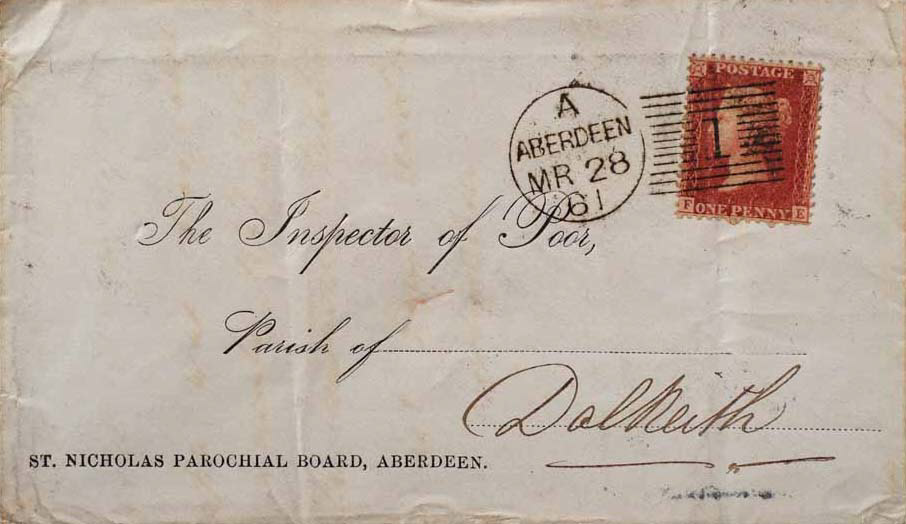 POSTAGE
A
ABERDEEN
MR 28
61
1
F ONE PENNY E
The Inspector of Poor,
Parish of
Dalkeith
ST. NICHOLAS PAROCHIAL BOARD, ABERDEEN.